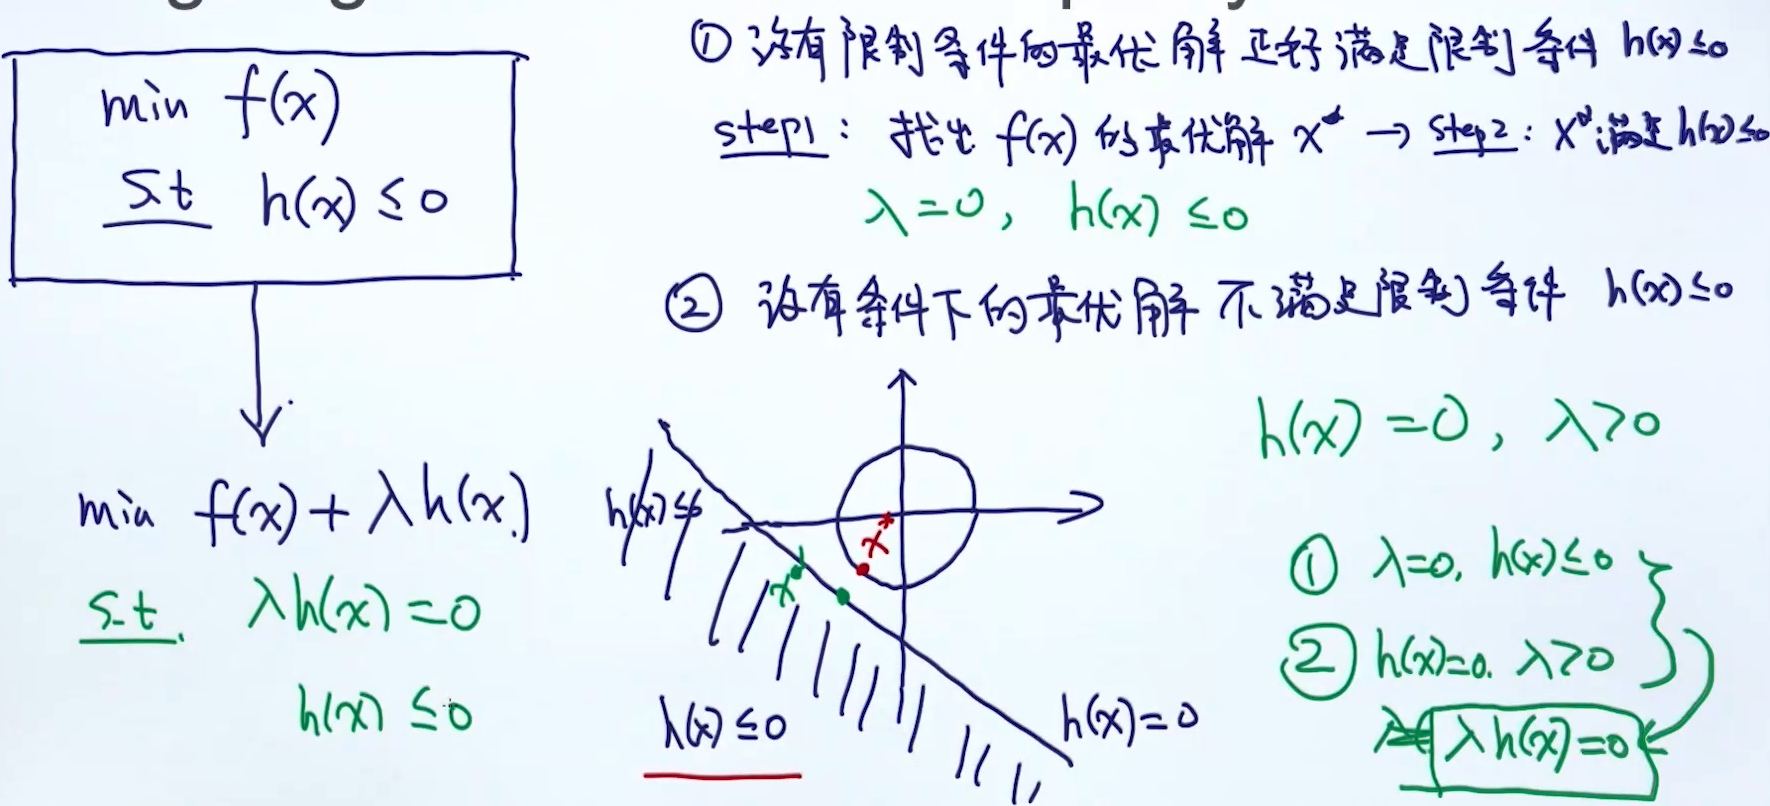 min f(x)
s.t h(x) ≤ 0
min f(x) + λh(x)
s.t. λh(x) = 0
h(x) ≤ 0
① 没有限制条件的最优解正好满足限制条件 h(x) ≤ 0
step1: 找出 f(x) 的最优解 x* → step2: x* 满足 h(x) ≤ 0
λ = 0, h(x) ≤ 0
② 没有条件下的最优解 不满足限制条件 h(x) ≤ 0
h(x) = 0, λ > 0
h(x) ≤ 0
x
x
h(x) ≤ 0
h(x) = 0
① λ=0, h(x) ≤ 0
② h(x)=0. λ > 0
λh(x) = 0